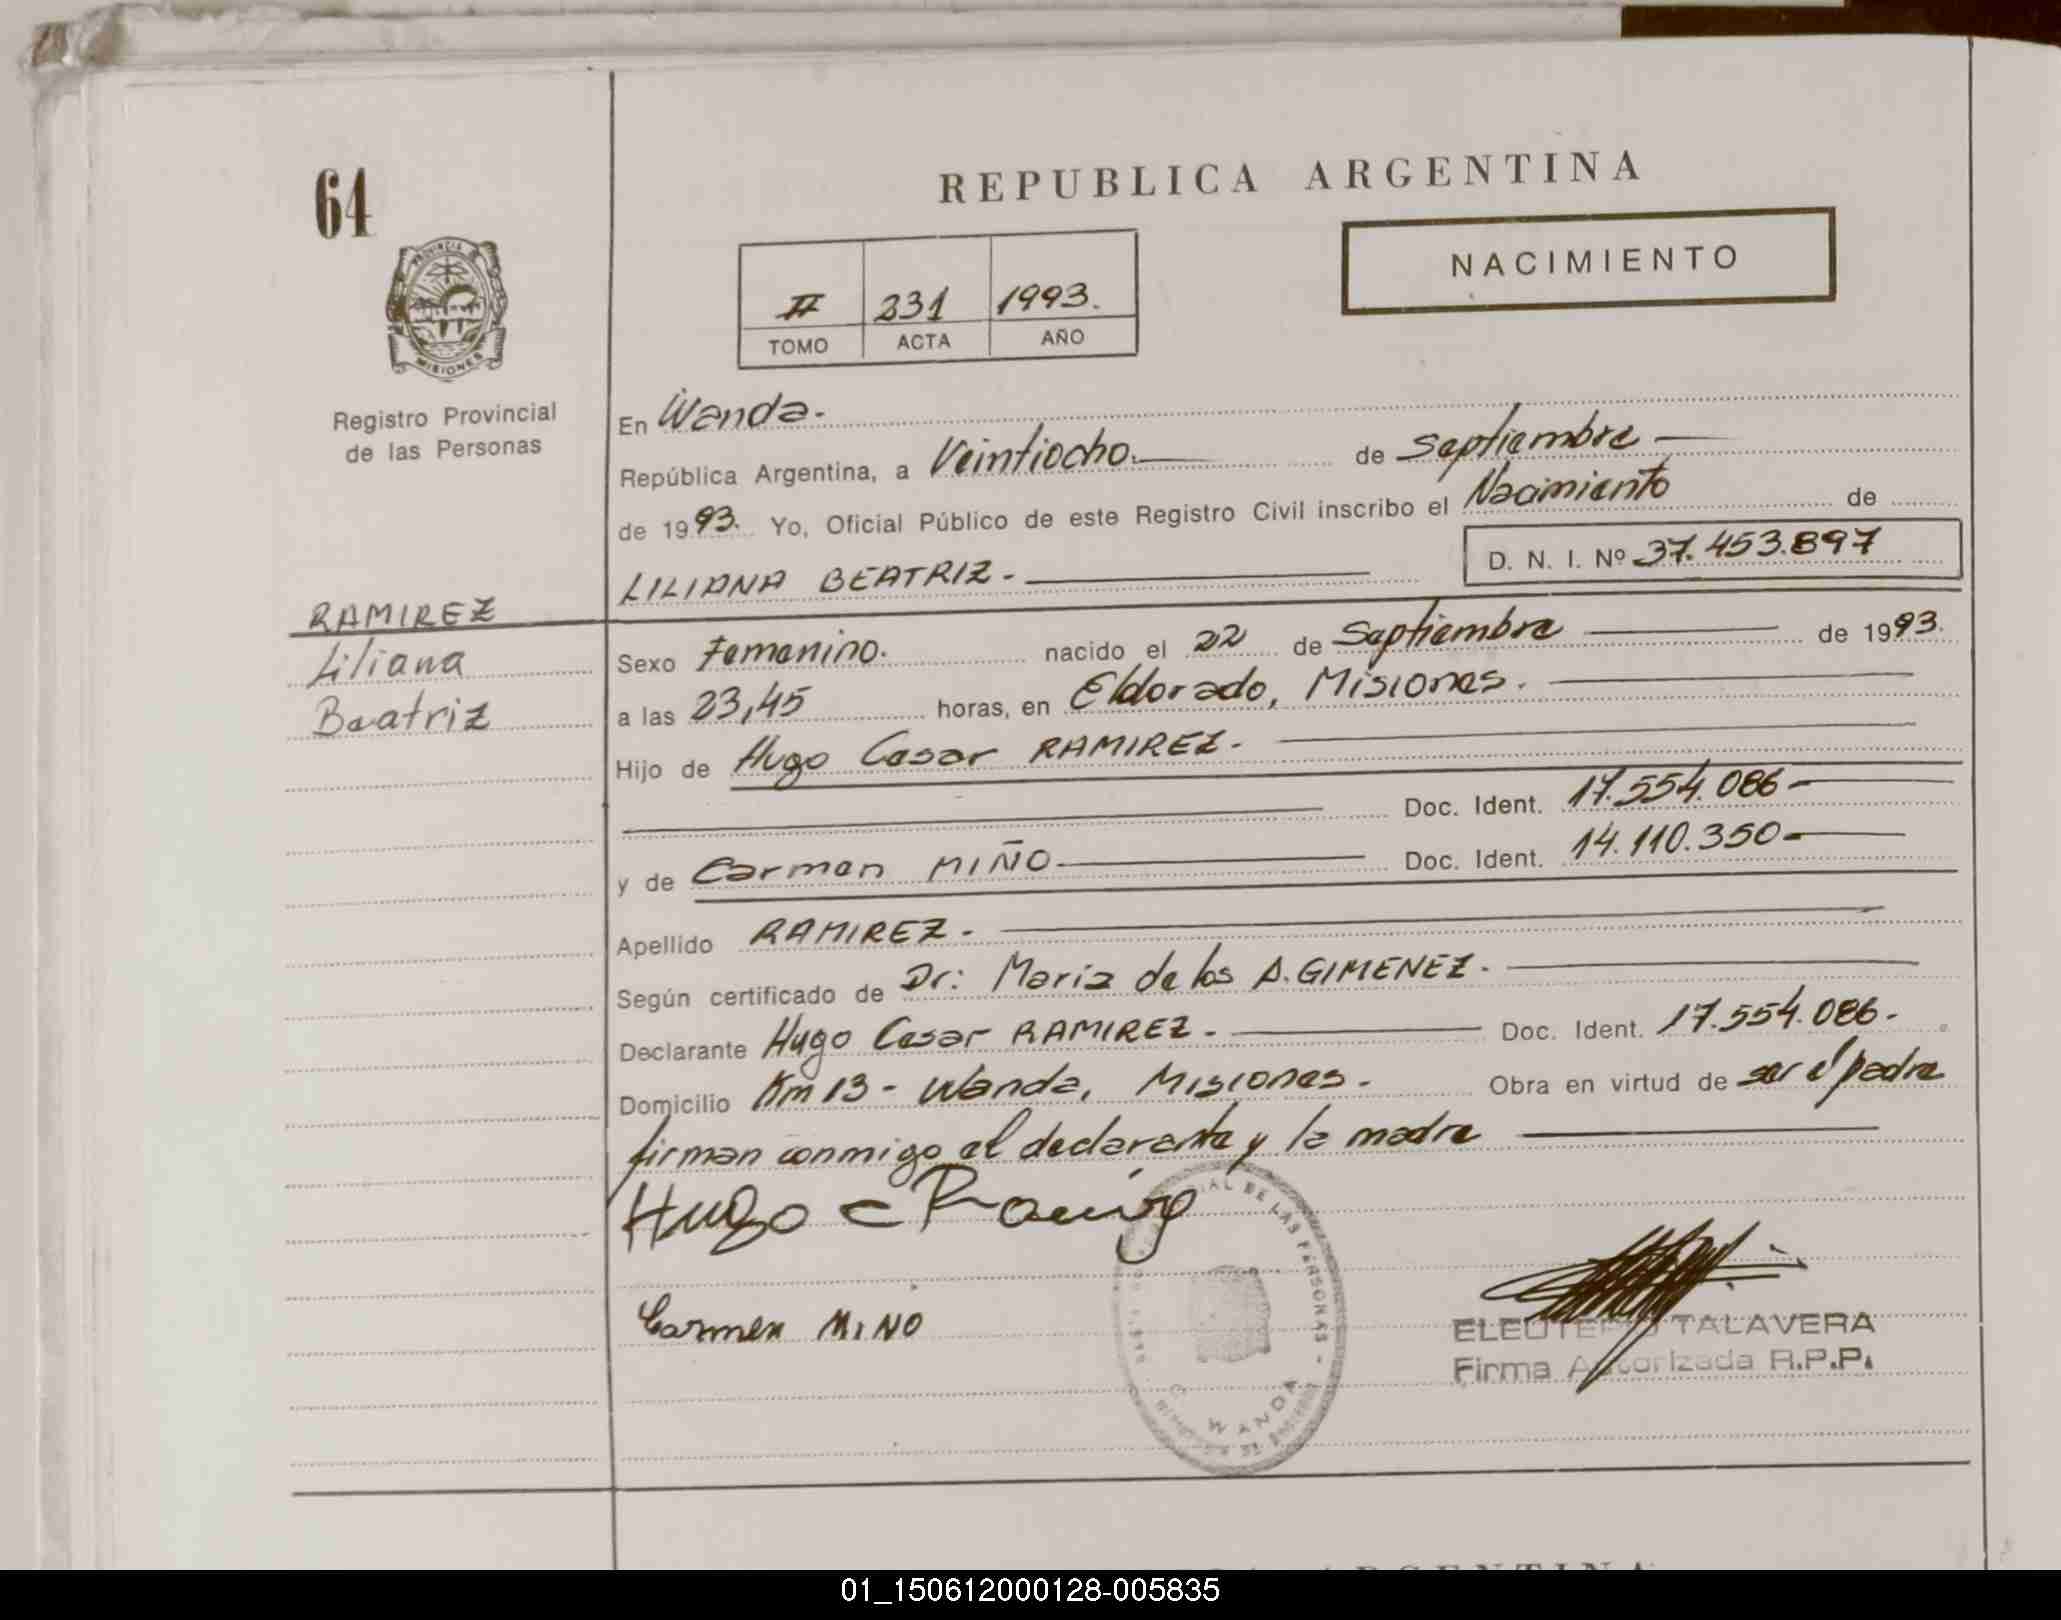 64
REPUBLICA ARGENTINA
NACIMIENTO
II 231 1993.
TOMO ACTA AÑO
PROVINCIA DE
MISIONES
Registro Provincial
de las Personas
En Wanda.
República Argentina, a Veintiocho. de Septiembre
de 1993. Yo, Oficial Público de este Registro Civil inscribo el Nacimiento de
LILIANA BEATRIZ. D. N. I. Nº 37.453.897
RAMIREZ
Liliana
Beatriz
Sexo Femenino. nacido el 22 de Septiembre de 1993.
a las 23,45 horas, en Eldorado, Misiones.
Hijo de Hugo Cesar RAMIREZ.
Doc. Ident. 17.554.086
y de Carmen MIÑO Doc. Ident. 14.110.350
Apellido RAMIREZ.
Según certificado de Dr: Maria de los A. GIMENEZ.
Declarante Hugo Cesar RAMIREZ. Doc. Ident. 17.554.086.
Domicilio Km 13 - Wanda, Misiones. Obra en virtud de ser el padre
firman conmigo el declarante y la madre
Hugo C Ramirez
DE LAS PERSONAS
WANDA
Carmen MINO
ELEUTERIO TALAVERA
Firma Autorizada R.P.P.
01_150612000128-005835